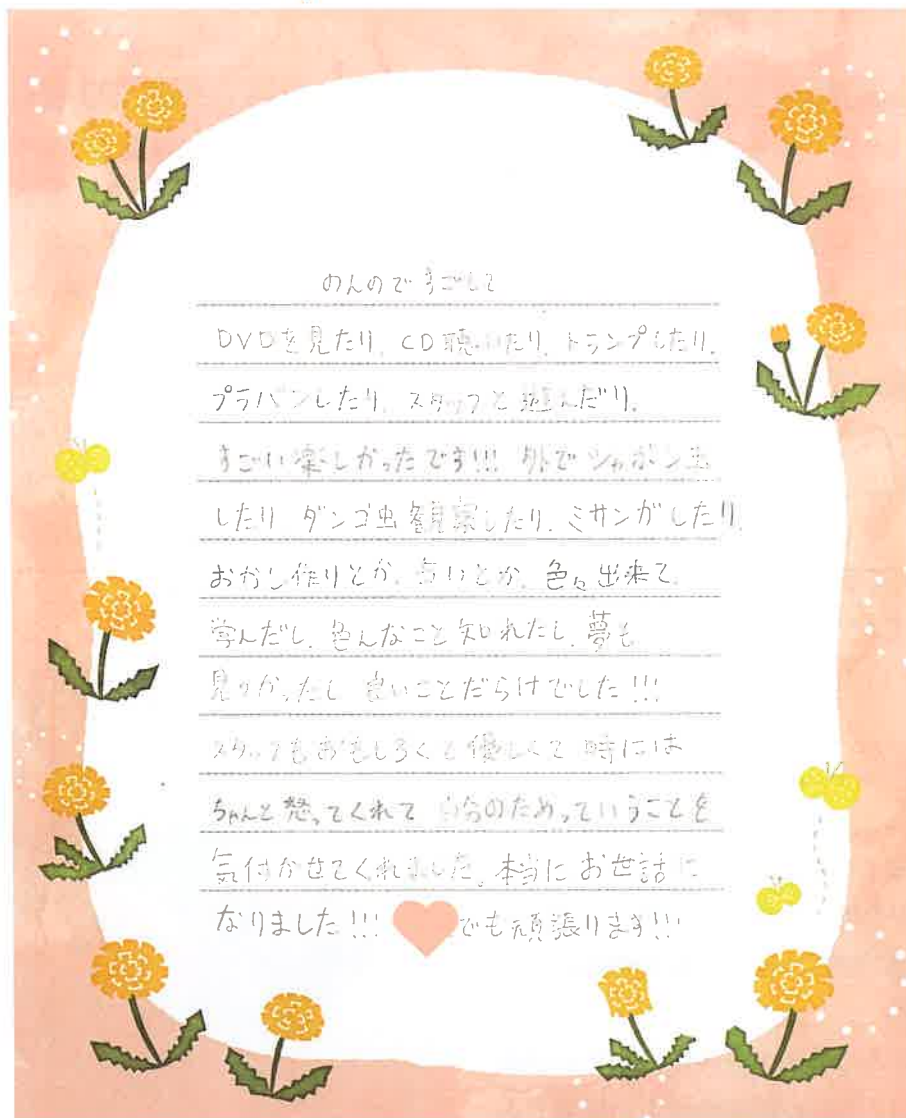 のんのですごして
DVDを見たり、CD聴いたり、トランプしたり、
プラバンしたり、スタッフと遊んだり、
すごい楽しかったです!!! 外でシャボン玉
したり ダンゴ虫観察したり、ミサンガしたり、
おかし作りとか、占いとか、色々出来て、
学んだし、色んなこと知れたし、夢も
見つかったし 良いことだらけでした!!!
スタッフもおもしろくと優しくて 時には
ちゃんと怒ってくれて 自分のためっていうことを
気付かせてくれました。本当にお世話に
なりました!!! でも頑張ります!!!